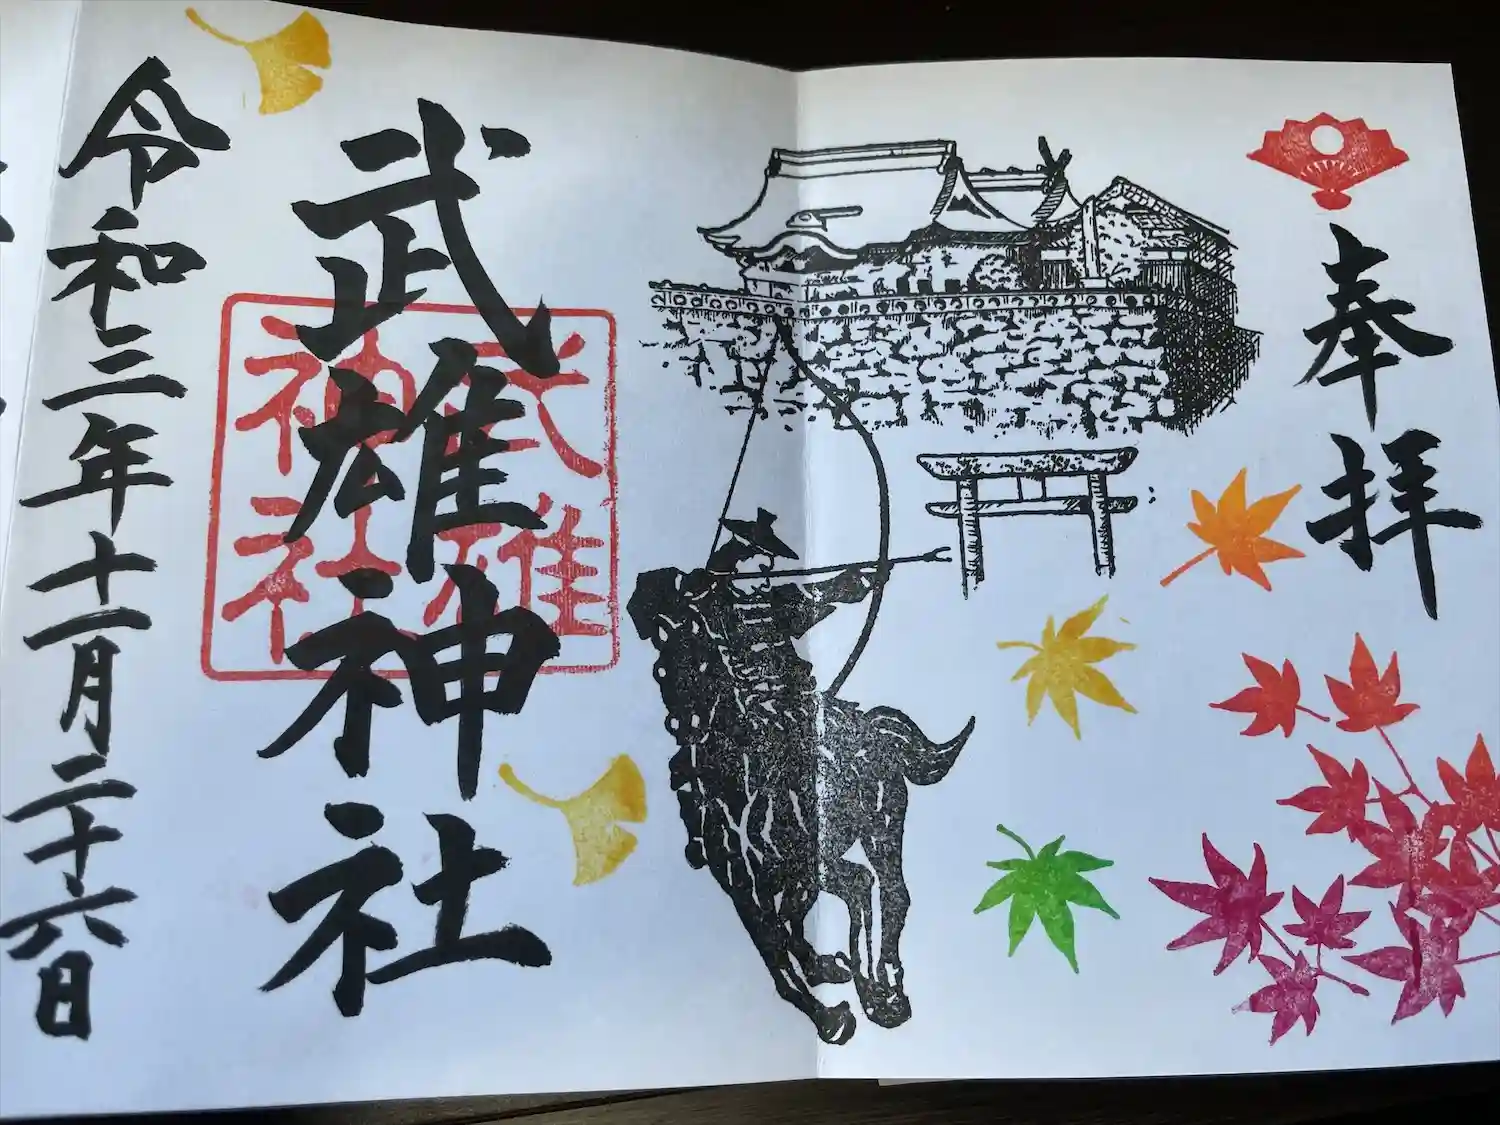 奉拝
武雄神社
武雄
神社
令和二年十一月二十六日